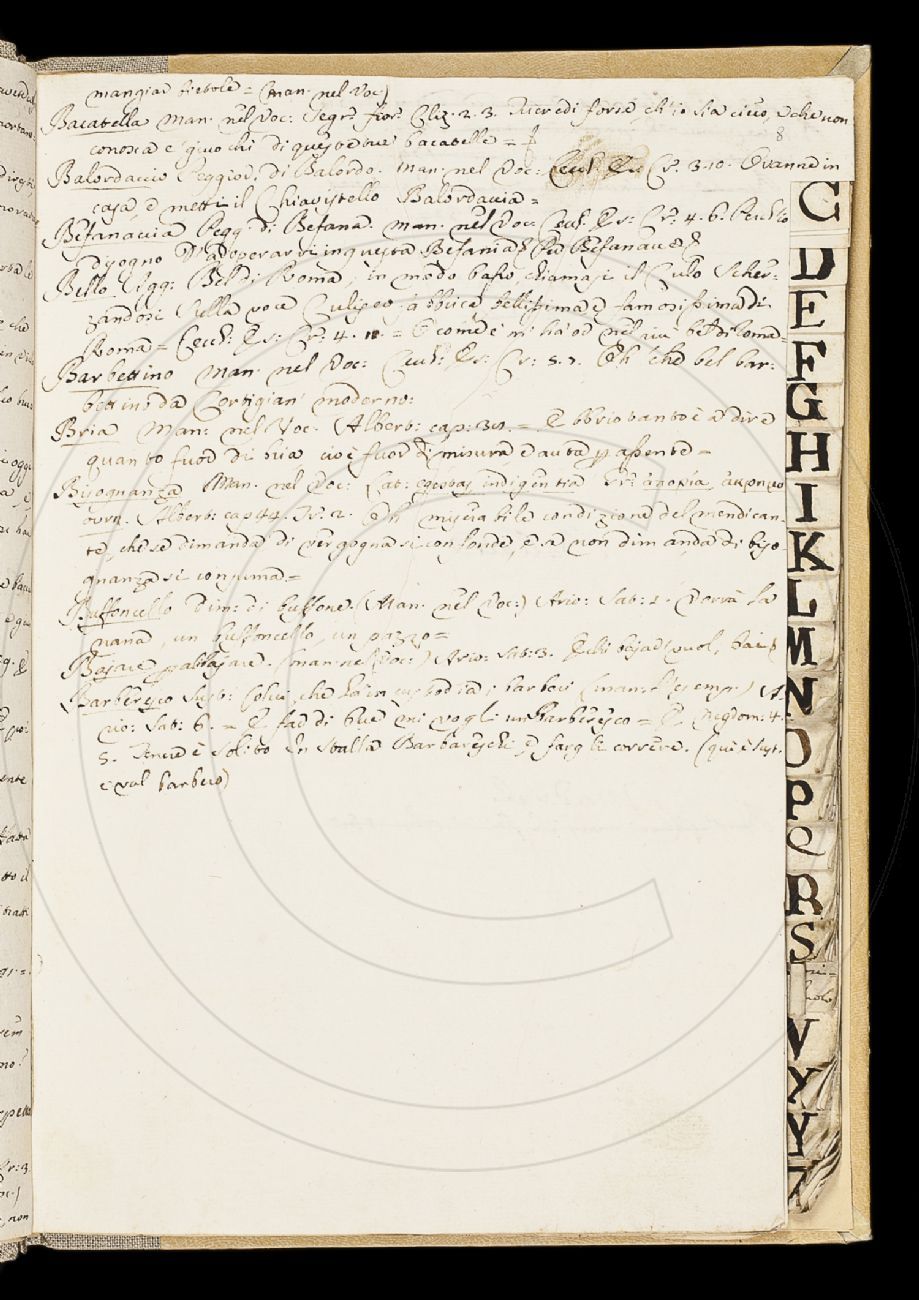 mangiar bietole = (man. nel Voc.)
Bacatella Man. nel Voc: Segr. fior. Cliz. 2. 3. Accredi forse, ch'io sia cieco, e che non
conosca e giuochi di queste tue bacatelle =
8
Balordaccio Peggior. di Balordo. Man. nel Voc: Cecch. Cr. 3. 10. O vanne in
casa, e metti il Chiavistello Balordaccia =
Befanaccia Pegg. di Befana. man. nel Voc: Cecch. Es: Cr: 4. 6.
disogno D'adoperarvi in questa Befania
Bello Sigg: Bel di Roma, in modo basso chiamasi il Culo Scher:
zandosi sulla voce Culiseo, fabbrica bellissima e famosissima di
Roma = Cecch: Es: Cr: 4. = E come e' m' ha nel mio bel di Roma =
Barbettino Man. nel Voc: Cecch: Es: Cr: 5. 7. Eh che bel bar:
bettino da Cortigian moderno:
Bria Man: nel Voc. Albert: cap: = E ebbrio tanto è a dire
quanto fuor di bria cioè fuor di misura, e
Bisognanza Man. nel Voc: Lat: egestas, indigentia Gr: ἀπορία,
Albert: cap 44. Tr: 2. Oh miserabile condizione del mendican:
te, che se dimanda di vergogna si confonde, e se non dimanda di biso
gnanza si consuma =
Buffoncello Dim: di buffone. (Man. nel Voc:) Ario: Sat: 1. Vorrà la
nana, un buffoncello, un pazzo =
Bajare p abbajare. (man. nel Voc:) Ario: Sat: 3. E chi bajar vuol, bai
Barberesco Sust: Colui, che ha in custodia i barberi (man. l'esemp.) A:
rio: Sat: 6. = E far di bue mi vogli un Barberesco = E Negrom: 4.
5. Tenere è solito In stalla Barbareschi e fargli correre. (qui è sust.
e val barbero)
C
D
E
F
G
H
I
K
L
M
N
O
P
Q
R
S
V
X
Y
Z